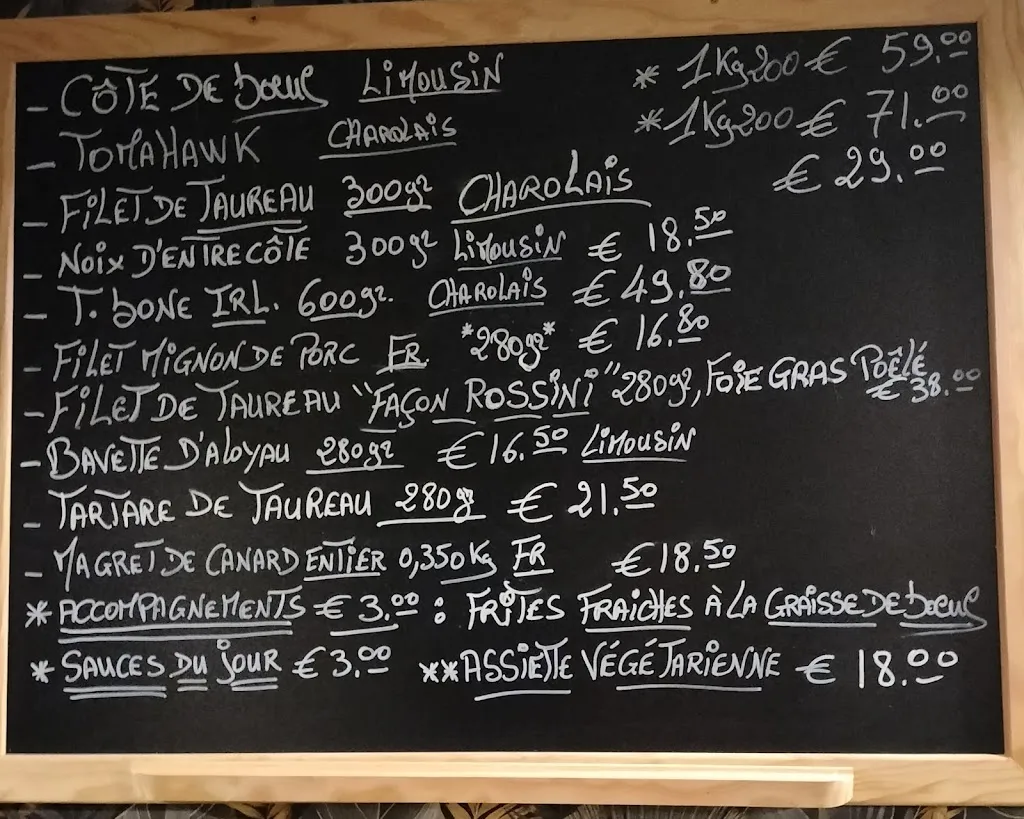 - CÔTE DE bœuf LiMOUSiN * 1Kg200 € 59.00
- TOMAHAWK CHAROLAiS * 1Kg200 € 71.00
- FiLET DE TAUREAU 300gr CHAROLAiS € 29.00
- NOiX D'ENTRECÔTE 300gr LiMOUSiN € 18.50
- T. bONE IRL. 600gr. CHAROLAiS € 49.80
- FiLET MiGNON DE PORC FR. *280gr* € 16.80
- FiLET DE TAUREAU "FAÇON ROSSiNi" 280gr, FOiE GRAS POÊLÉ € 38.00
- BAVETTE D'ALOYAU 280gr € 16.50 LiMOUSiN
- TARTARE DE TAUREAU 280gr € 21.50
- MAGRET DE CANARD ENTiER 0,350Kg FR € 18.50
* ACCOMPAGNEMENTS € 3.00 : FRiTES FRAiCHES À LA GRAiSSE DE bœuf
* SAUCES DU jOUR € 3.00 **ASSiETTE VÉGÉTARiENNE € 18.00